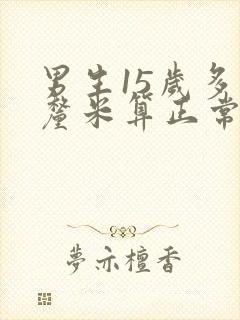 男生15歲多
釐米算正常
夢亦檀香